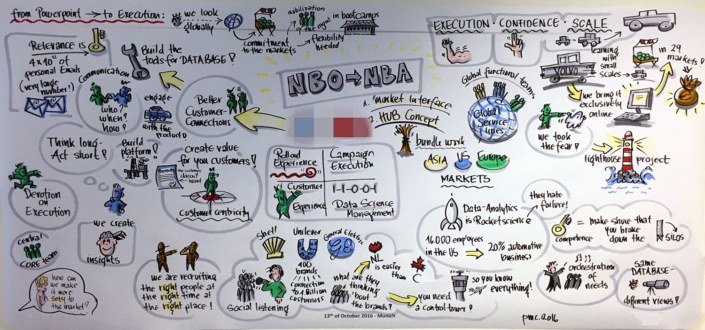 from Powerpoint → to Execution:
we look
globally
commitment
to the markets
mobilization
in the spot
→ flexibility
needed
in bootcamps
EXECUTION · CONFIDENCE · SCALE
Relevance is
4 x 10⁶ of
personal Emails
(very large
number!)
Build the
tools for DATABASE!
communication
who?
when?
how?
engage
with the
product?
Better
Customer-
Connections
NBO → NBA
1. market interface
2. HUB Concept
bundle work
Global functional teams
Global
Service
Lines
ASIA
US
Europe
MARKETS
VOLVO
learning
with
small
scales →
in 29
markets!
we bring it
exclusively
online
we took
the fear!
lighthouse
project
Think long-
Act short!
Build
platform!
create value
for you customers!
customer centricity
Devotion
on
Execution
we create
insights
central
CORE team
how can
we make
it more
sexy to
the market?
we are recruiting
the right people at
the right time at
the right place!
Rollout
Experience
Campaign
Execution
Customer
Experience
1-1-0-0-1
Data Science
Management
Data-Analytics
is Rocketscience
16000 employees
in the US → 20% automotive
business
they hate
failure!
competence
= make shure that
you brake
down the
SILOS
Shell
Unilever
General Electric
400
brands
connection
to 1 Billion
customers
Social listening
what are they
thinking
'bout
the brands?
NL
is easier
than
you need
a control tower!
so you know
everything!
orchestration
of needs
same
DATABASE-
different views!
pmc.2016
13th of October 2016 - Munich